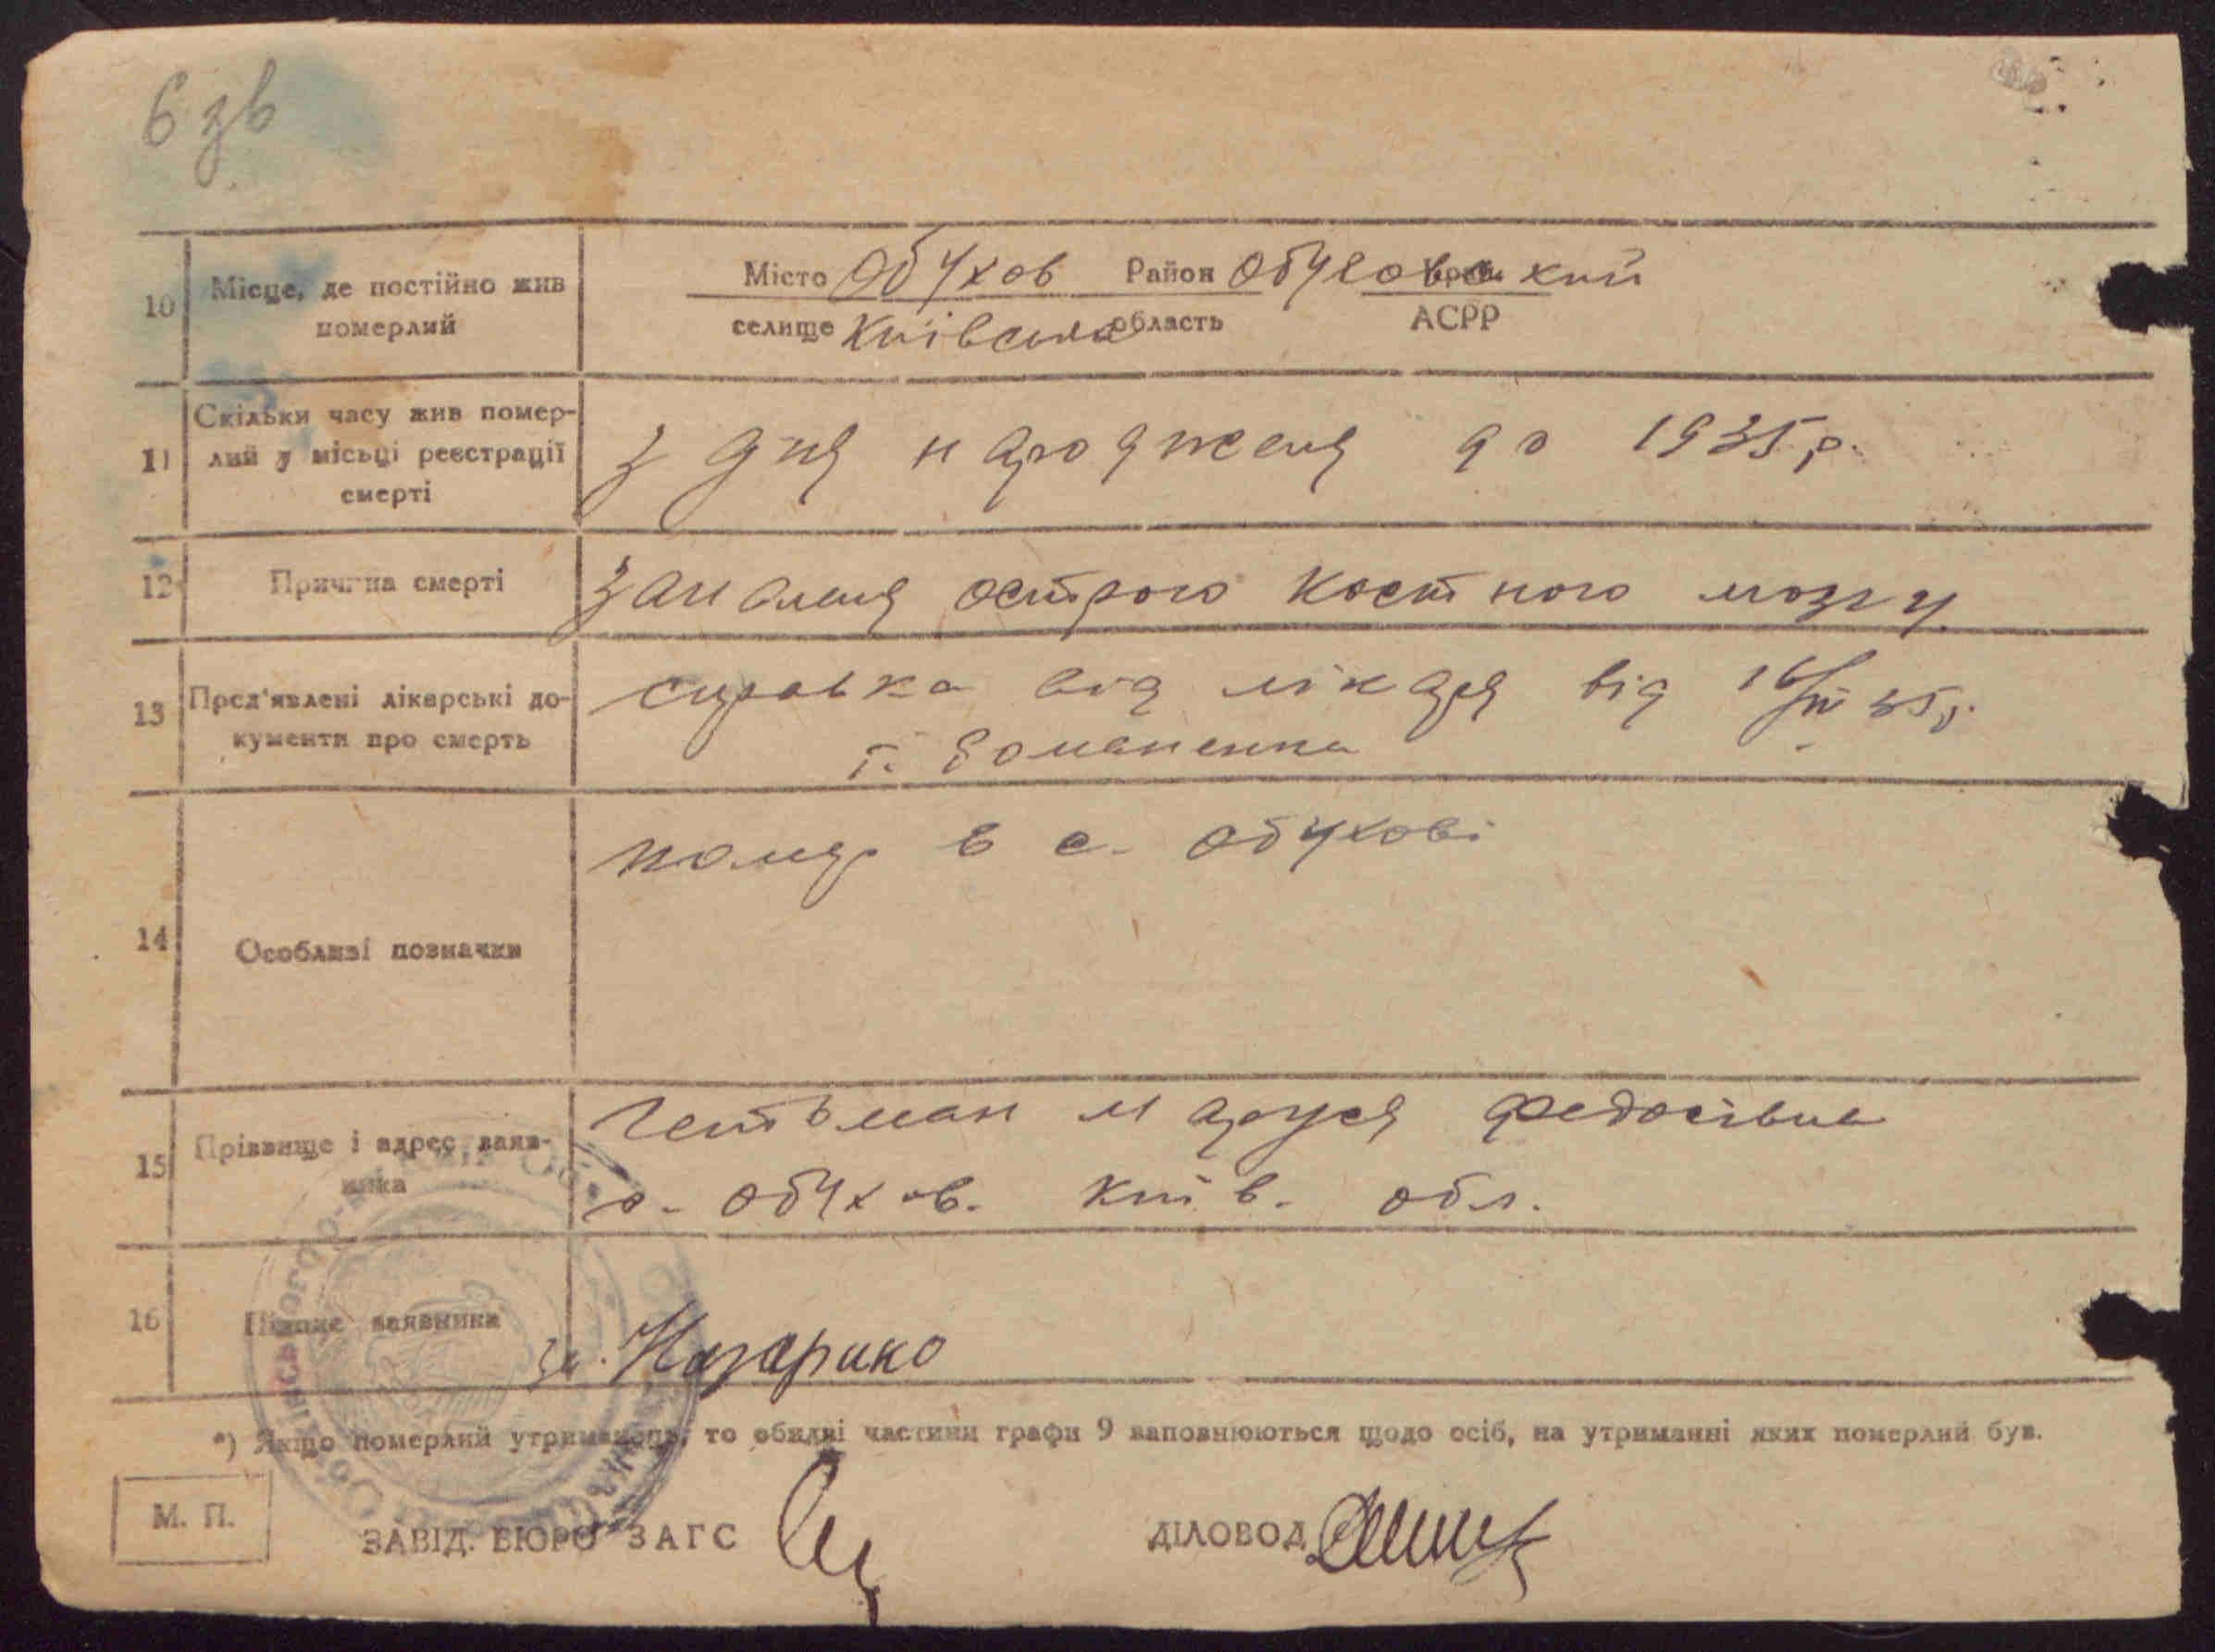 6 зв
10 Місце, де постійно жив померлий
Місто Обухов Район Обуховский Край
селище Київська область АСРР
11 Скільки часу жив померлий у місьці реєстрації смерті
з дня народженя до 1935 р.
12 Причина смерті
запаленя острого костного мозгу
13 Пред'явлені лікерські документи про смерть
справка від лікаря від 16/ 35 р.
г. Романенка
14 Особливі позначки
помер в с. Обухові
15 Прізвище і адрес заявника
Гетьман Маруся Федосівна
с. Обухов. Київ. обл.
16 Підпис заявника
за.
*) Якщо померлий утриманець, то обидві частини графи 9 заповнюються щодо осіб, на утриманні яких померлий був.
М. П.
ЗАВІД. БЮРО ЗАГС
ДІЛОВОД